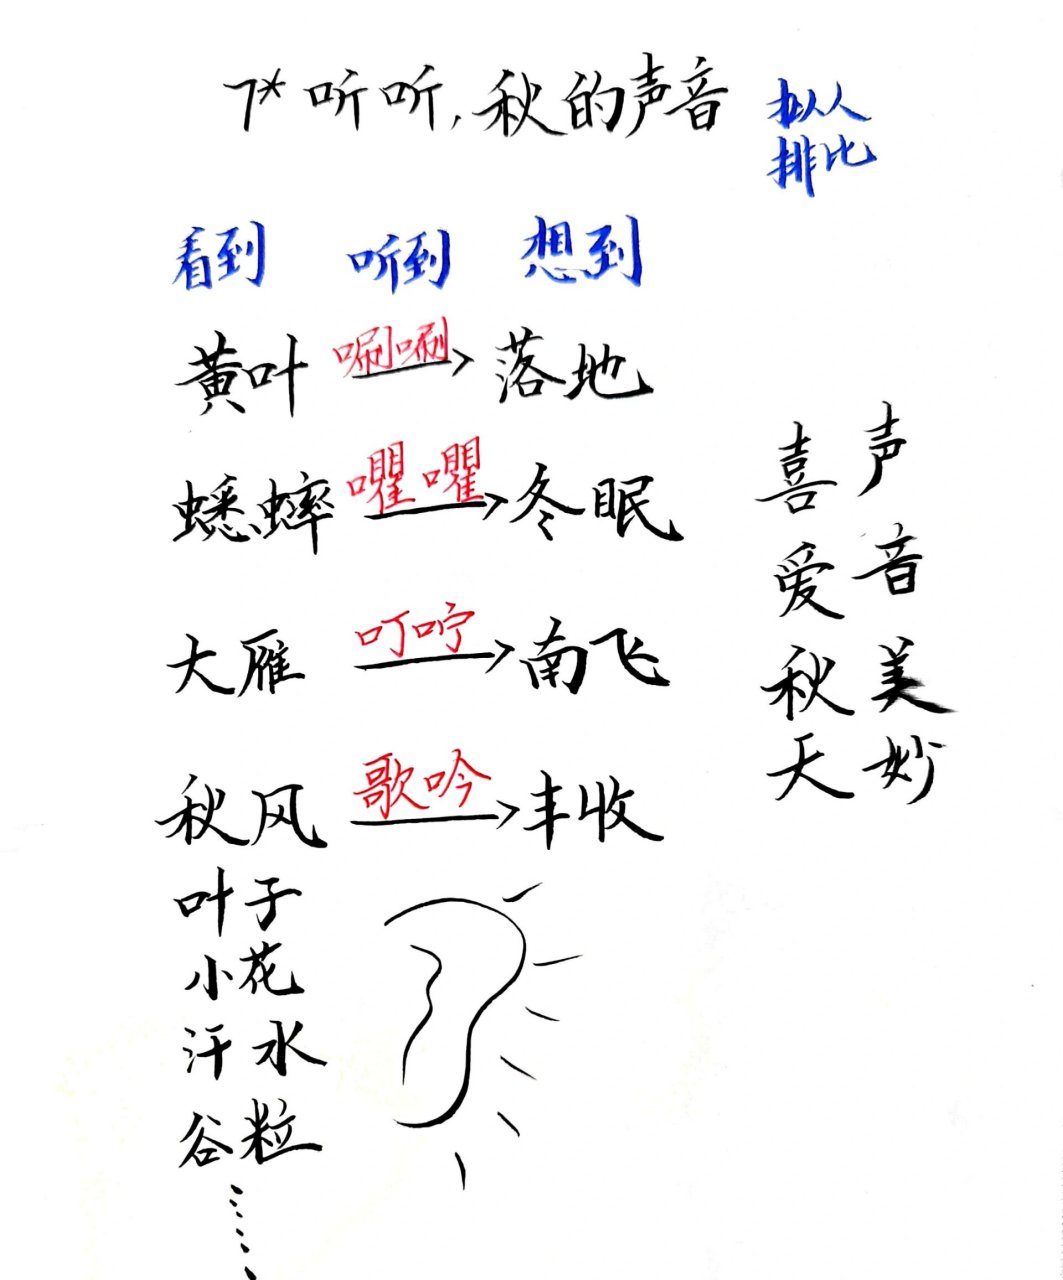 7* 听听,秋的声音
拟人
排比
看到 听到 想到
黄叶 唰唰 落地
蟋蟀 㘗㘗 冬眠
大雁 叮咛 南飞
秋风 歌吟 丰收
叶子
小花
汗水
谷粒
……
声音美妙
喜爱秋天